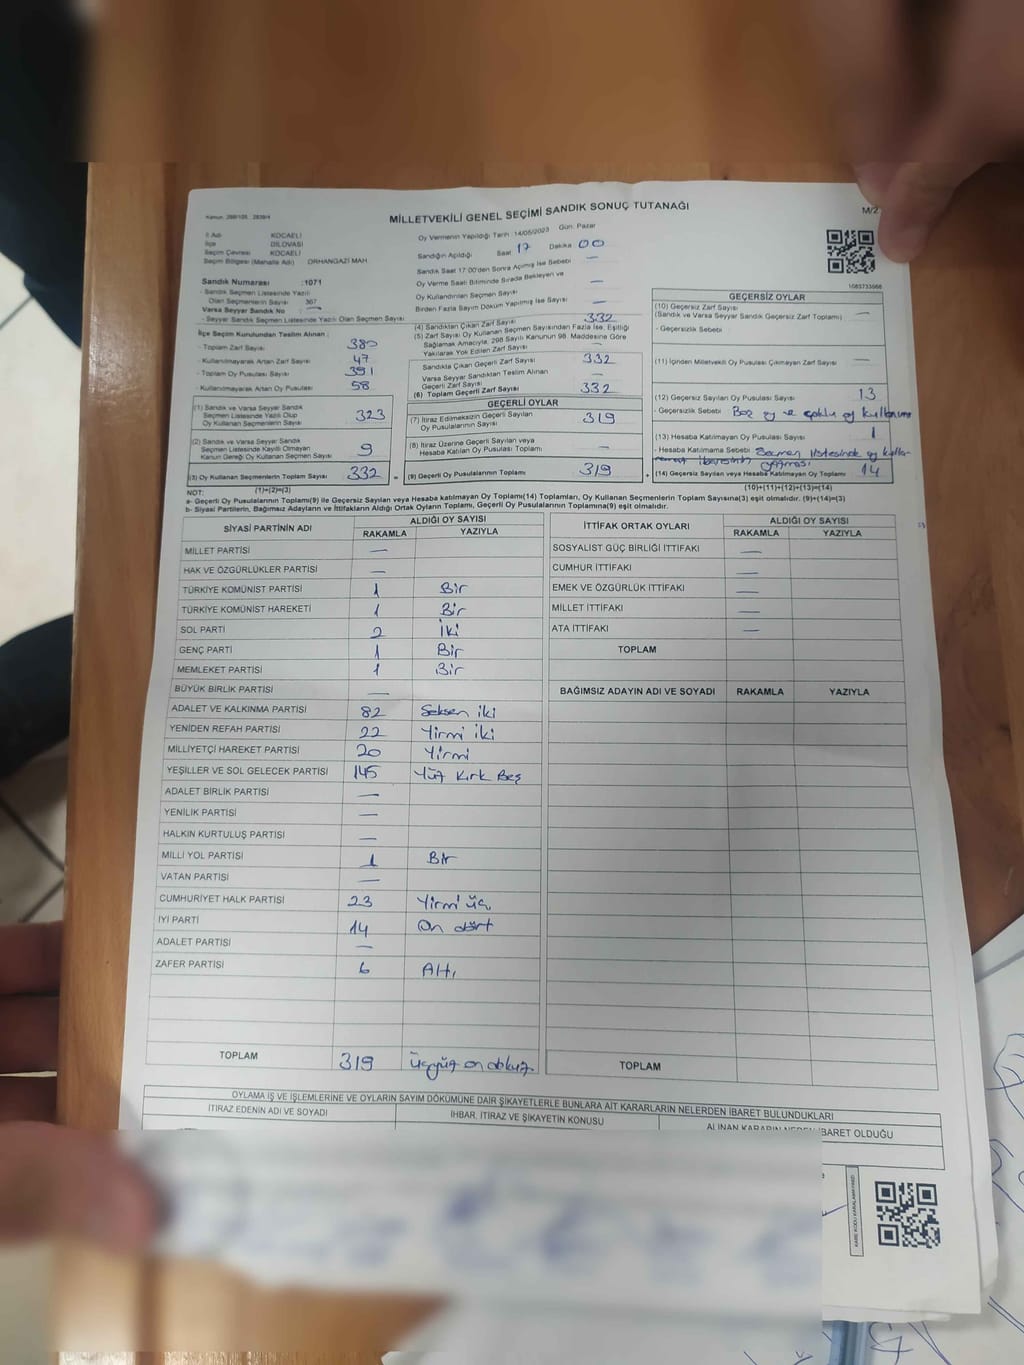 Kanun: 298/105, 2839/4
MİLLETVEKİLİ GENEL SEÇİMİ SANDIK SONUÇ TUTANAĞI
M/2
İl Adı KOCAELİ
İlçe DİLOVASI
Seçim Çevresi KOCAELİ
Seçim Bölgesi (Mahalle Adı) ORHANGAZİ MAH
Oy Vermenin Yapıldığı Tarih :14/05/2023 Gün: Pazar
Sandığın Açıldığı Saat 17 Dakika 00
Sandık Saat 17:00'den Sonra Açılmış İse Sebebi —
Oy Verme Saati Bitiminde Sırada Bekleyen ve
Oy Kullandırılan Seçmen Sayısı —
Birden Fazla Sayım Döküm Yapılmış İse Sayısı —
1083733666
Sandık Numarası :1071
- Sandık Seçmen Listesinde Yazılı
Olan Seçmenlerin Sayısı 367
Varsa Seyyar Sandık No —
- Seyyar Sandık Seçmen Listesinde Yazılı Olan Seçmen Sayısı
İlçe Seçim Kurulundan Teslim Alınan :
- Toplam Zarf Sayısı 380
- Kullanılmayarak Artan Zarf Sayısı 47
- Toplam Oy Pusulası Sayısı 391
- Kullanılmayarak Artan Oy Pusulası 58
(1) Sandık ve Varsa Seyyar Sandık
Seçmen Listesinde Yazılı Olup
Oy Kullanan Seçmen Sayısı 323
(2) Sandık ve Varsa Seyyar Sandık
Seçmen Listesinde Kayıtlı Olmayan
Kanun Gereği Oy Kullanan Seçmen Sayısı 9
(3) Oy Kullanan Seçmenlerin Toplam Sayısı 332
(1)+(2)=(3)
(4) Sandıktan Çıkan Zarf Sayısı 332
(5) Zarf Sayısı Oy Kullanan Seçmen Sayısından Fazla İse, Eşitliği
Sağlamak Amacıyla, 298 Sayılı Kanunun 98. Maddesine Göre
Yakılarak Yok Edilen Zarf Sayısı —
Sandıkta Çıkan Geçerli Zarf Sayısı 332
Varsa Seyyar Sandıktan Teslim Alınan
Geçerli Zarf Sayısı —
(6) Toplam Geçerli Zarf Sayısı 332
GEÇERLİ OYLAR
(7) İtiraz Edilmeksizin Geçerli Sayılan
Oy Pusulalarının Sayısı 319
(8) İtiraz Üzerine Geçerli Sayılan veya
Hesaba Katılan Oy Pusulası Toplamı —
= (9) Geçerli Oy Pusulalarının Toplamı 319
GEÇERSİZ OYLAR
(10) Geçersiz Zarf Sayısı
(Sandık ve Varsa Seyyar Sandık Geçersiz Zarf Toplamı) —
- Geçersizlik Sebebi
(11) İçinden Milletvekili Oy Pusulası Çıkmayan Zarf Sayısı —
(12) Geçersiz Sayılan Oy Pusulası Sayısı 13
Geçersizlik Sebebi : Boş oy ve çoklu oy kullanımı
(13) Hesaba Katılmayan Oy Pusulası Sayısı 1
- Hesaba Katılmama Sebebi : Seçmen listesinde oy kullan
+ (14) Geçersiz Sayılan veya Hesaba Katılmayan Oy Toplamı 14
(10)+(11)+(12)+(13)=(14)
NOT:
a- Geçerli Oy Pusulalarının Toplamı(9) ile Geçersiz Sayılan veya Hesaba katılmayan Oy Toplamı(14) Toplamları, Oy Kullanan Seçmenlerin Toplam Sayısına(3) eşit olmalıdır. (9)+(14)=(3)
b- Siyasi Partilerin, Bağımsız Adayların ve İttifakların Aldığı Ortak Oyların Toplamı, Geçerli Oy Pusulalarının Toplamına(9) eşit olmalıdır.
SİYASİ PARTİNİN ADI ALDIĞI OY SAYISI
RAKAMLA YAZIYLA
MİLLET PARTİSİ —
HAK VE ÖZGÜRLÜKLER PARTİSİ —
TÜRKİYE KOMÜNİST PARTİSİ 1 Bir
TÜRKİYE KOMÜNİST HAREKETİ 1 Bir
SOL PARTİ 2 iki
GENÇ PARTİ 1 Bir
MEMLEKET PARTİSİ 1 Bir
BÜYÜK BİRLİK PARTİSİ —
ADALET VE KALKINMA PARTİSİ 82 Seksen iki
YENİDEN REFAH PARTİSİ 22 Yirmi iki
MİLLİYETÇİ HAREKET PARTİSİ 20 Yirmi
YEŞİLLER VE SOL GELECEK PARTİSİ 145 Yüz Kırk Beş
ADALET BİRLİK PARTİSİ —
YENİLİK PARTİSİ —
HALKIN KURTULUŞ PARTİSİ —
MİLLİ YOL PARTİSİ 1 Bir
VATAN PARTİSİ —
CUMHURİYET HALK PARTİSİ 23 Yirmi üç
İYİ PARTİ 14 On dört
ADALET PARTİSİ —
ZAFER PARTİSİ 6 Altı
TOPLAM 319 üçyüz on dokuz
İTTİFAK ORTAK OYLARI ALDIĞI OY SAYISI
RAKAMLA YAZIYLA
SOSYALİST GÜÇ BİRLİĞİ İTTİFAKI —
CUMHUR İTTİFAKI —
EMEK VE ÖZGÜRLÜK İTTİFAKI —
MİLLET İTTİFAKI —
ATA İTTİFAKI —
TOPLAM
BAĞIMSIZ ADAYIN ADI VE SOYADI RAKAMLA YAZIYLA
TOPLAM
OYLAMA İŞ VE İŞLEMLERİNE VE OYLARIN SAYIM DÖKÜMÜNE DAİR ŞİKAYETLERLE BUNLARA AİT KARARLARIN NELERDEN İBARET BULUNDUKLARI
İTİRAZ EDENİN ADI VE SOYADI
İHBAR, İTİRAZ VE ŞİKAYETİN KONUSU
ALINAN KARARIN NEDEN İBARET OLDUĞU
KARE KODU KARALAMAYINIZ!